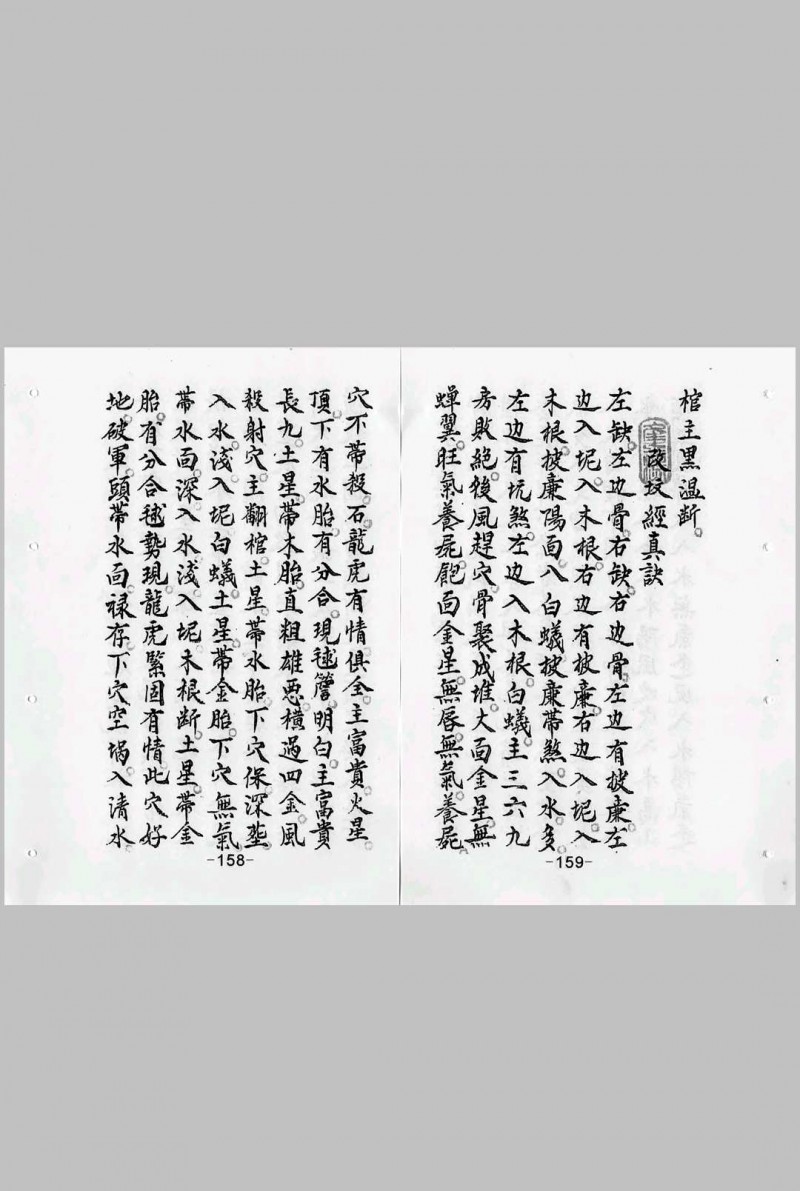 穴不帶殺。石龍虎有情俱全主富貴火星
頂下有水胎有分合。現毬簷明白。主富貴
長九土星。帶木胎直粗雄惡。橫過四金風
殺射穴。主翻棺。土星帶水胎下穴。保深塟。
入水淺入坭白蟻。土星帶金胎。下穴無氣
帶水面深入水淺入坭木根斷。土星。帶金
胎。有分合。毬勢現。龍虎緊固有情此穴好
地。破軍頭帶水面。禄存下穴空堝入清水
-158-
棺主黑温斷。
改坟經真訣
左缺。左边骨。右缺。右边骨。左边有披廉左
边入坭。入木根。右边有披廉。右边入坭入
木根。披廉陽面。八白蟻披廉帶煞。入水多。
左边有坑煞。左边入木根。白蟻。主三六九
房敗絕。後風趕穴。骨聚成堆。大面金星。無
蟬翼。旺氣養屍。飽面金星。無唇。無氣養屍。
-159-